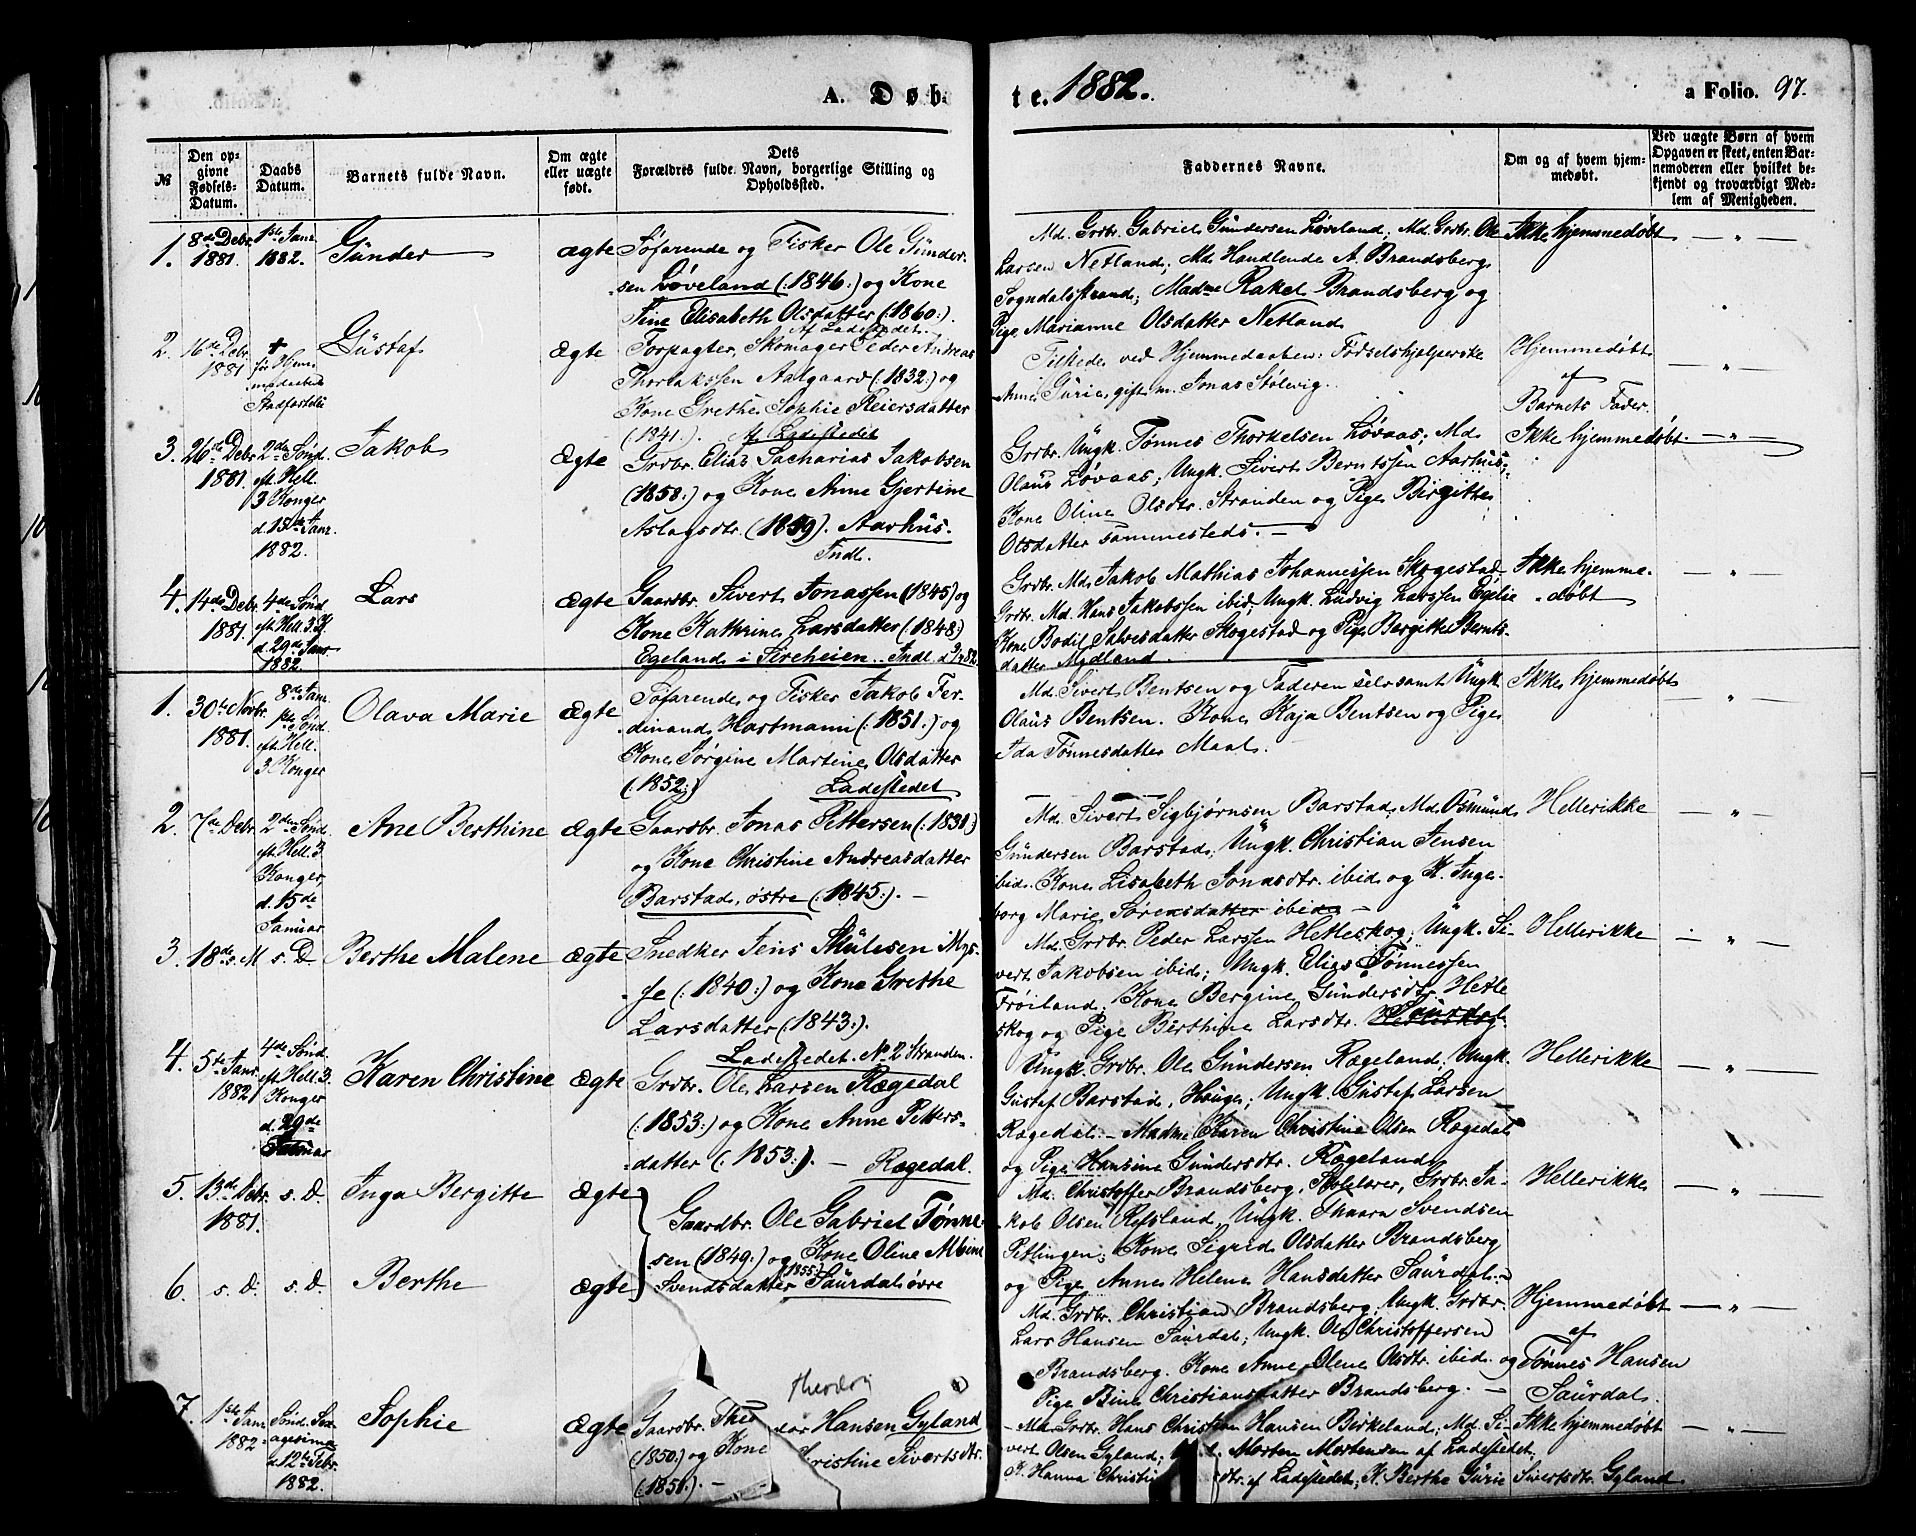 A. Døb-
te. 1882.
a Folio. 97.
№
Den op-
givne
Fødsels-
Datum.
Daabs
Datum.
Barnets fulde Navn.
Om ægte
eller uægte
født.
Dets
Forældres fulde Navn, borgerlige Stilling og
Opholdssted.
Faddernes Navne.
Om og af hvem hjem-
medøbt.
Ved uægte Børn af hvem
Opgaven er skeet, enten Bar-
nemoderen eller hvilket be-
kjendt og troværdigt Med-
lem af Menigheden.
1. 8de Debr. 1881. 1ste Janr. 1882. Günder ægte
Søfarende og Fisker Ole Günder-
sen Løveland (:1846:) og Kone
Tine Elisabeth Olsdatter (:1860:).
Af Ladestedet.
Md. Grdbr. Gabriel Gündersen Løveland; Md. Grdbr. Ole
Larsen Netland; Md. Handlende A. Brandsberg
Sogndalsstrand; Madme Rakel Brandsberg og
Pige Marianne Olsdatter Netland
Ikke hjemmedøbt — " —
2. 16de Debr. 1881 + før Hjem-
medaabens
Stadfæstelse
Güstaf ægte
Forpagter, Skomager Peder Andreas
Thorlakssen Aalgaard (:1832:) og
Kone Grethe Sophie Reiersdatter
(1841.). Af Ladestedet
Tilstede ved Hjemmedaaben: Fødselshjælperske
Anne Gurie, gift m. Jonas Stølevig.
Hjemmedøbt
af
Barnets Fader. — " —
3. 26de Debr. 1881. 2den Sønd.
eft. Hell.
3 Konger
d. 15de Janr.
1882.
Jakob Ægte
Grdbr. Elias Zacharias Jakobsen
(1858:) og Kone Anne Gjertine
Aslagsdtr. (1859). Aarhus.
Indl.
Grdbr. Ungk. Tønnes Thorkelsen Løvaas; Md.
Olaus Løvaas; Ungk. Sivert Berntssen Aarhus;
Kone Oline Olsdtr. Stranden og Pige Birgitte
Olsdatter sammesteds. —
Ikke hjemmedøbt. — " —
4. 14de Debr. 1881. 4de Sønd.
eft. Hell. 3 K.
d. 29de Janr.
1882.
Lars Ægte
Gaardbr. Sivert Jonassen (1845) og
Kone Kathrine Larsdatter (:1848:)
Egeland i Sireheien. Indl.
Grdbr. Md. Jakob Mathias Johannessen Skogestad,
Grdbr. Md. Hans Jakobssen ibid; Ungk. Ludvig Larssen Egelie
Kone Bodil Salvesdatter Skogestad og Pige Bergitte Bernts-
datter Mydland.
Ikke hjemme-
døbt — " —
1. 30te Novbr. 1881. 8de Janr.
1ste Sønd.
eft. Hell.
3 Konger
Olava Marie Ægte
Søfarende og Fisker Jakob Fer-
dinand Hartmann (:1851.:) og
Kone Jørgine Martine Olsdatter
(:1852:) Ladestedet
Md. Sivert Bentsen og Faderen selv samt Ungk.
Olaus Bentsen. Kone Kaja Bentsen og Pige
Ida Tønnesdatter Maal.
Ikke hjemmedøbt — " —
2. 7de Debr. 2den Sønd.
eft. Hell. 3
Konger,
d. 15de
Januar
Ane Berthine ægte
Gaardbr. Jonas Pettersen (:1838:)
og Kone Christine Andreasdatter
Barstad, østre (:1845:). —
Md. Sivert Sigbjørnsen Barstad, Md. Osmund
Gündersen Barstad; Ungk. Christian Jensen
ibid. Kone Lisabeth Jonasdtr. ibid og K. Inge-
borg Marie Sørensdatter ibid. —
Hellerikke — " —
3. 18de s. M s. D. Berthe Malene ægte
Snedker Jens Skulesen Mys-
se (:1840:) og Kone Grethe
Larsdatter (:1843:).
Ladestedet. No 2 Stranden.
Md. Grdbr. Peder Larssen Hetleskog; Ungk. Si-
vert Jakobsen ibid; Ungk. Elias Tønnessen
Frøiland; Kone Bergine Gündersdtr. Hetle-
skog og Pige Berthine Larsdtr. Saurdal.
Hellerikke — " —
4. 5te Janr. 1882 4de Sønd.
eft. Hell. 3.
Konger
d. 29de
Januar
Karen Christine Ægte
Grdbr. Ole Larsen Rægedal
(:1853:) og Kone Anne Petters-
datter (:1853:). — Rægedal.
Ungk. Grdbr. Ole Gündersen Rægeland; Ungk.
Güstaf Barstad, Hauge; Ungk. Güstaf Larsen
Rægedal. — Madme Karen Christine Olsen Rægedal
og Pige Hansine Gündersdtr. Rægeland
Hellerikke — " —
5. 13de Debr. 1881. s. D. Inga Bergitte Ægte
Gaardbr. Ole Gabriel Tønne-
sen (1849:) og Kone Oline Mbine
Svendsdatter (1855:) Saurdal øvre
Md. Christoffer Brandsberg, Skolelærer, Grdbr. Ja-
kob Olsen Refsland, Ungk. Thaara Svendsen
Petlingen; Kone Sigrid Olsdatter Brandsberg
og Pige Anne Helene Hansdatter Saurdal. —
Hellerikke — " —
6. s. D. s. D. Berthe Ægte
Md. Grdbr. Christian Brandsberg; Ungk. Grdbr.
Lars Hansen Saurdal; Ungk. Ole Christoffersen
Brandsberg. Kone Anne Olene Olsdtr. ibid. og
Pige Bine Christiansdatter Brandsberg. —
Hjemmedøbt
af
Tønnes Hansen
Saurdal. — " —
7. 1ste Janr. 1882 Sønd. Sex-
agesima
d 12te Febr.
1882.
Sophie Ægte
Gaardbr. Theo dor Hansen Gyland
(1850.) og Kone Christine Sivertsdtr.
(:1851.). —
Md. Grdbr. Hans Christian Hansen Birkeland; Md. Si-
vert Olsen Gyland; Morten Mortensen af Ladestedet;
K. Hanna Christi dtr. af Ladestedet; K. Berthe Gürie Sivertsdtr. Gyland
Ikke hjemmedøbt — " —